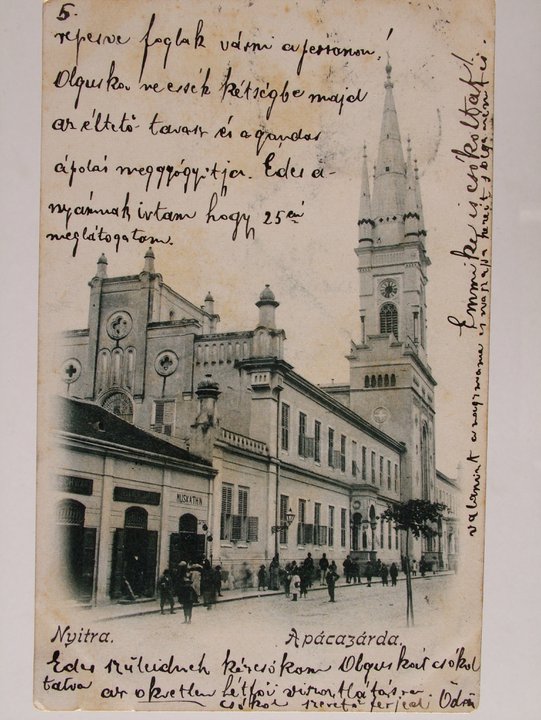 5.
reperve foglak várni a personon!
Olguska ne essék kétségbe majd
az éltető tavasz és a gondos
ápolás meggyógyitja. Édes a-
nyámnak irtam hogy 25 én
meglátogatom.
Emmike is csókoltat!
valamint a nagymama
MUSKATH N.
Nyitra.
Apácazárda.
Édes szüleidnek kézcsókom Olguskát csókol
tatva az okvetlen hétfői viszontlátásra
csókol szerető férjed Ödön